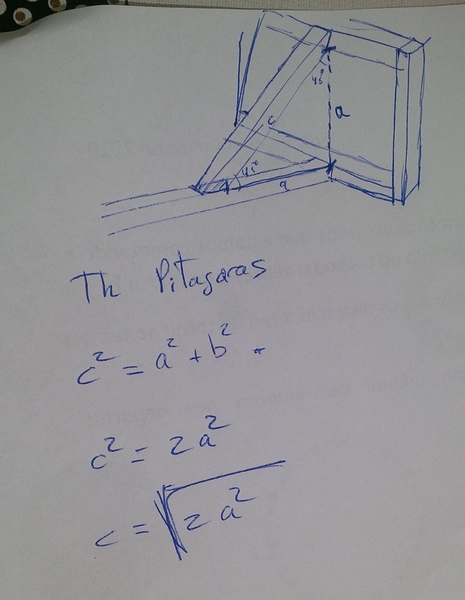 45°
a
c
45°
a
Th Pitagoras
c² = a² + b² .
c² = 2a²
c = √2 a²